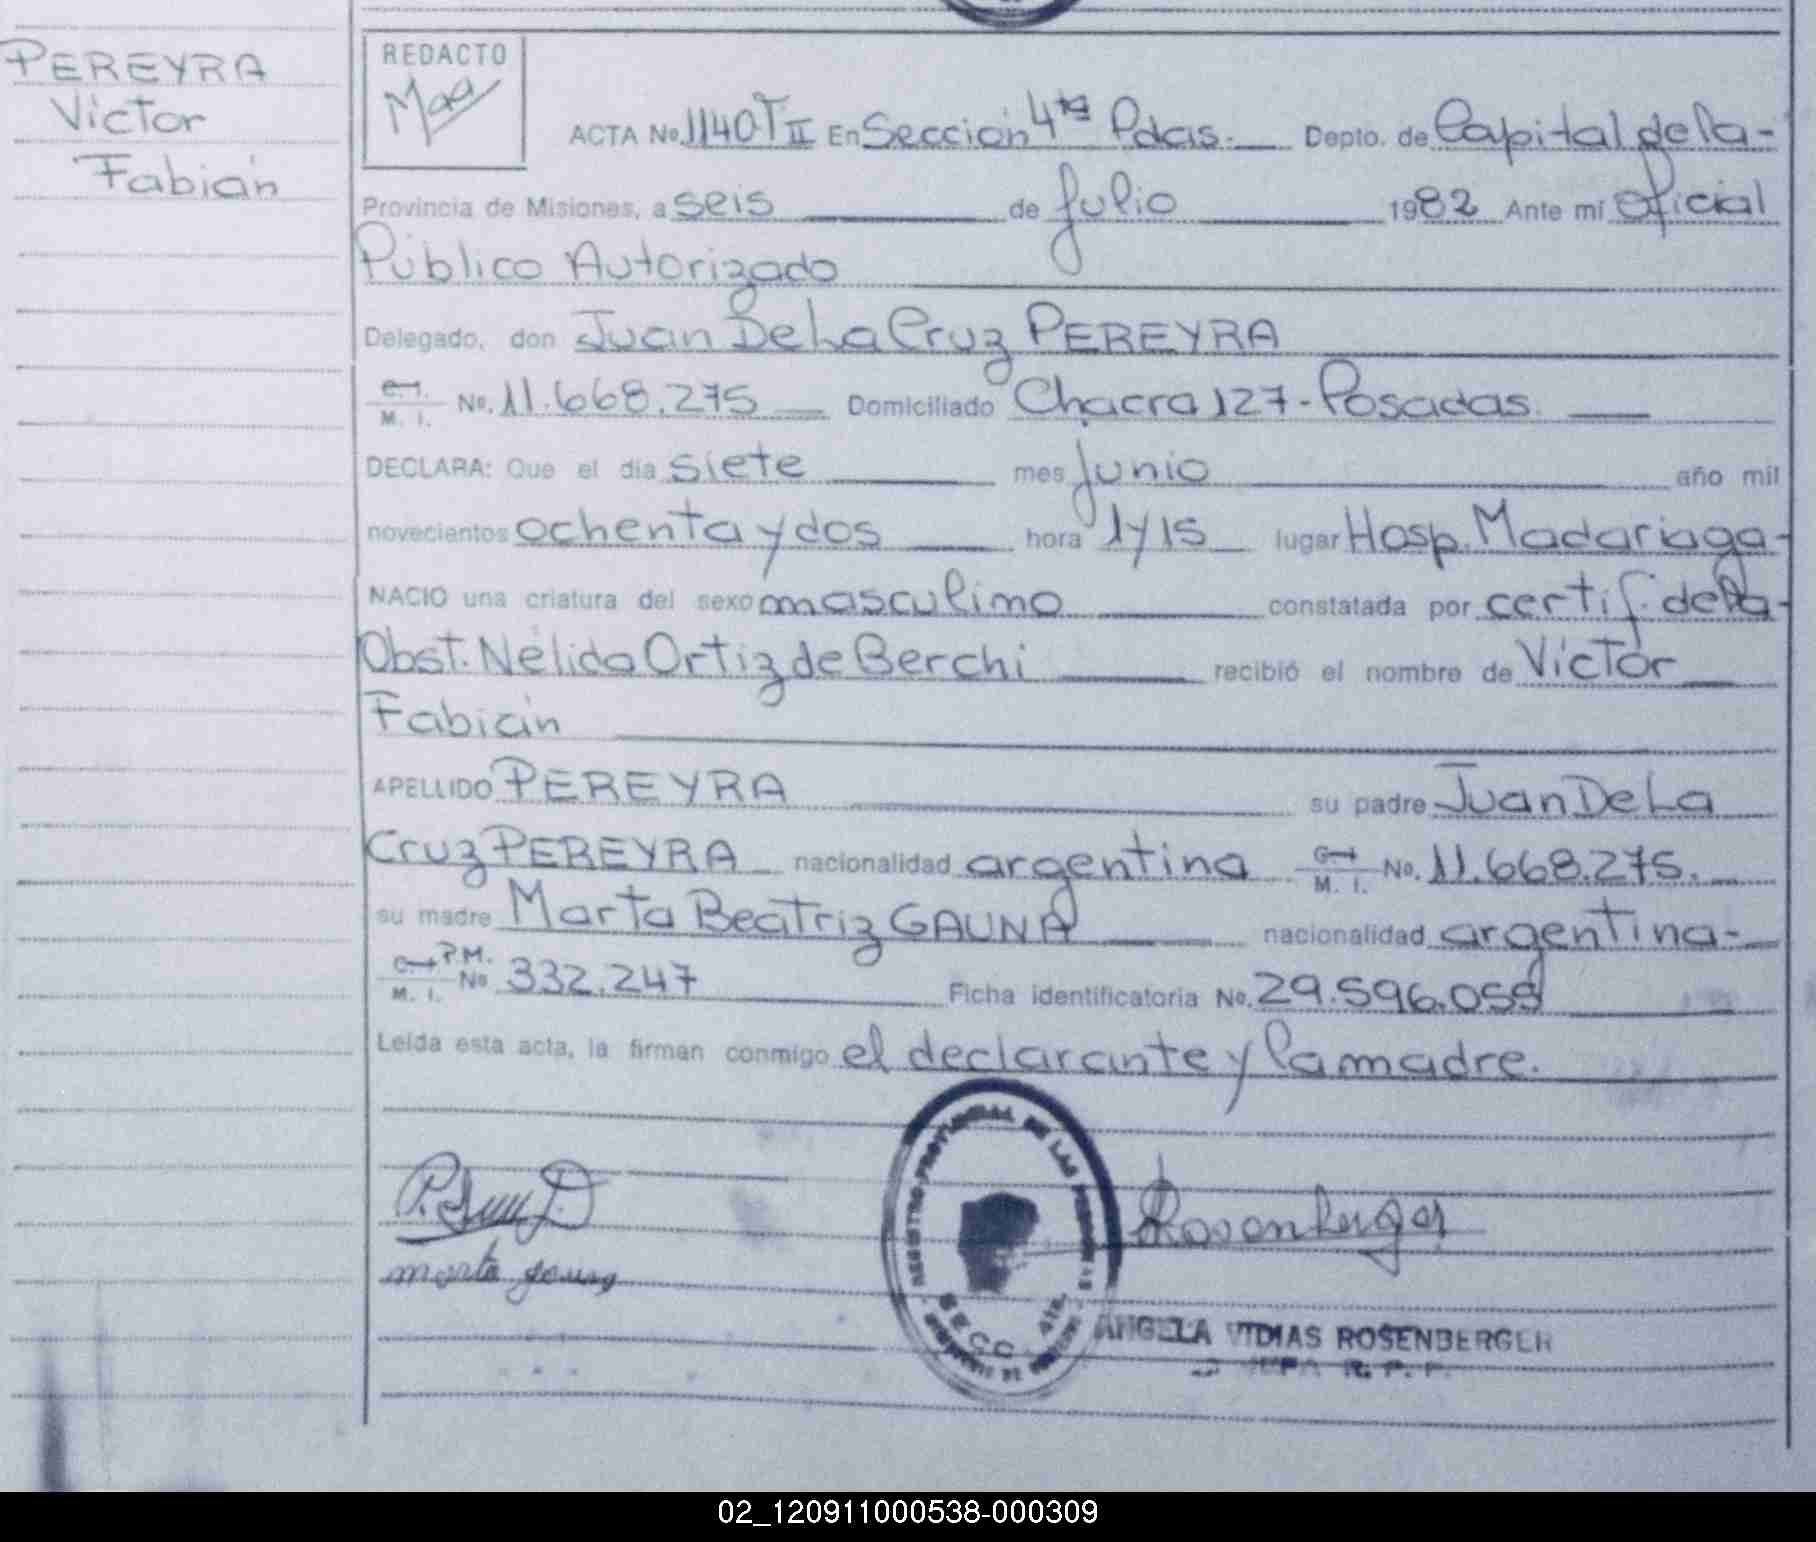 PEREYRA
Victor
Fabián
REDACTO
ACTA No. 1140 T II En Sección 4ta Pdas. Depto. de Capital de la-
Provincia de Misiones, a seis de Julio 1982 Ante mí Oficial
Público Autorizado
Delegado, don Juan De La Cruz PEREYRA
M. I. No. 11.668.275 Domiciliado Chacra 127 - Posadas.
DECLARA: Que el día siete mes Junio año mil
novecientos ochenta y dos hora 1 y 15 lugar Hosp. Madariaga-
NACIO una criatura del sexo masculino constatada por certif. de la-
Obst. Nélida Ortiz de Berchi recibió el nombre de Víctor
Fabián
APELLIDO PEREYRA su padre Juan De La
Cruz PEREYRA nacionalidad argentina M. I. No. 11.668.275.
su madre Marta Beatriz GAUNA nacionalidad argentina-
P.M.
M. I. No 332.247 Ficha identificatoria No. 29.596.059
Leída esta acta, la firman conmigo el declarante y la madre.
REGISTRO PROVINCIAL DE LAS PERSONAS
SECC. 4ta.
Rosenberger
marta gauna
ANGELA VIDIAS ROSENBERGER
JEFA R. P. P.
02_120911000538-000309